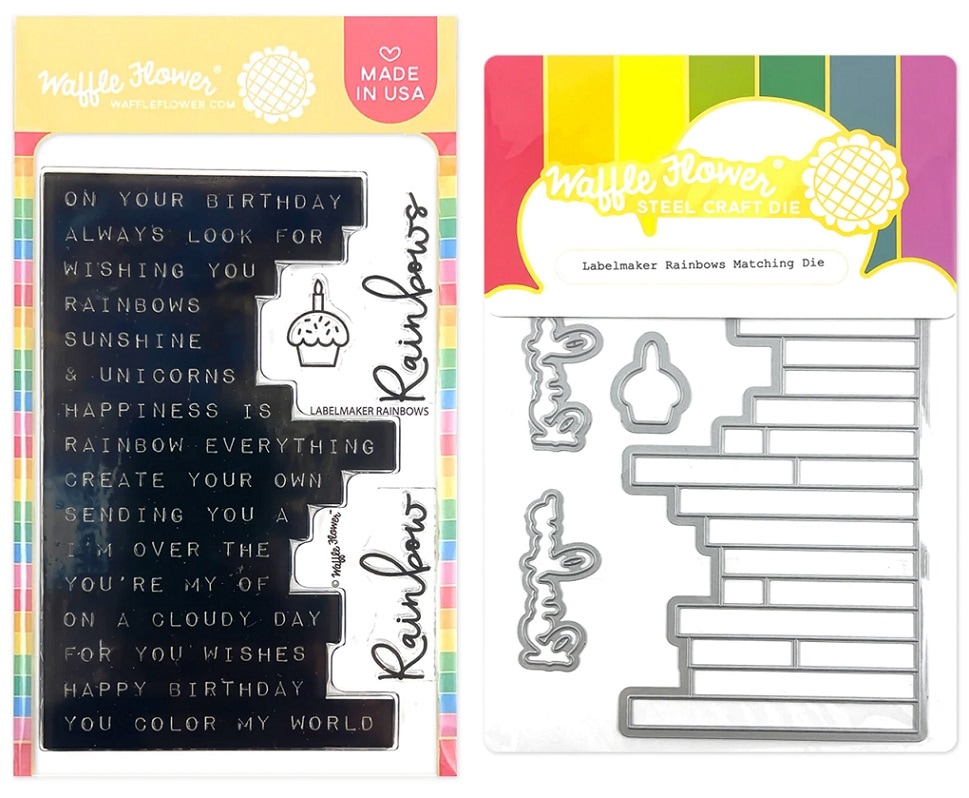 Waffle Flower®
WAFFLEFLOWER.COM
MADE
IN USA
ON YOUR BIRTHDAY
ALWAYS LOOK FOR
WISHING YOU
RAINBOWS
SUNSHINE
& UNICORNS
HAPPINESS IS
RAINBOW EVERYTHING
CREATE YOUR OWN
SENDING YOU A
I'M OVER THE
YOU'RE MY OF
ON A CLOUDY DAY
FOR YOU WISHES
HAPPY BIRTHDAY
YOU COLOR MY WORLD
Rainbows
LABELMAKER RAINBOWS
© Waffle Flower™
Rainbow
Waffle Flower®
STEEL CRAFT DIE
Labelmaker Rainbows Matching Die